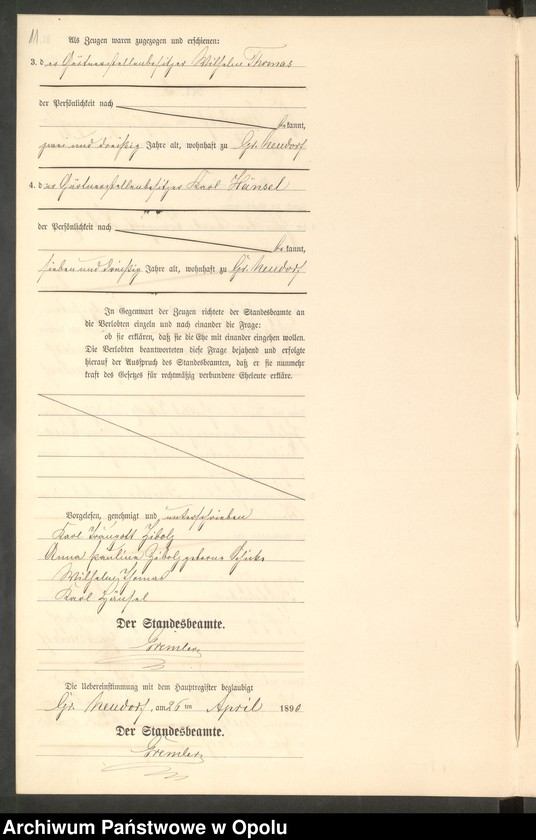 11.
Als Zeugen waren zugezogen und erschienen:
3. der Gärtnerstellenbesitzer Wilhelm Thomas
der Persönlichkeit nach
be kannt,
zwei und dreißig Jahre alt, wohnhaft zu Gr. Neudorf
4. der Gärtnerstellenbesitzer Karl Hänsel
der Persönlichkeit nach
be kannt,
sieben und dreißig Jahre alt, wohnhaft zu Gr. Neudorf
In Gegenwart der Zeugen richtete der Standesbeamte an
die Verlobten einzeln und nach einander die Frage:
ob sie erklären, daß sie die Ehe mit einander eingehen wollen.
Die Verlobten beantworteten diese Frage bejahend und erfolgte
hierauf der Ausspruch des Standesbeamten, daß er sie nunmehr
kraft des Gesetzes für rechtmäßig verbundene Eheleute erkläre.
Vorgelesen, genehmigt und unterschrieben
Karl Traugott
Anna Pauline geborne
Wilhelm Thomas
Karl Hänsel
Der Standesbeamte.
Die Uebereinstimmung mit dem Hauptregister beglaubigt
Gr. Neudorf, am 26 ten April 1890
Der Standesbeamte.
Archiwum Państwowe w Opolu